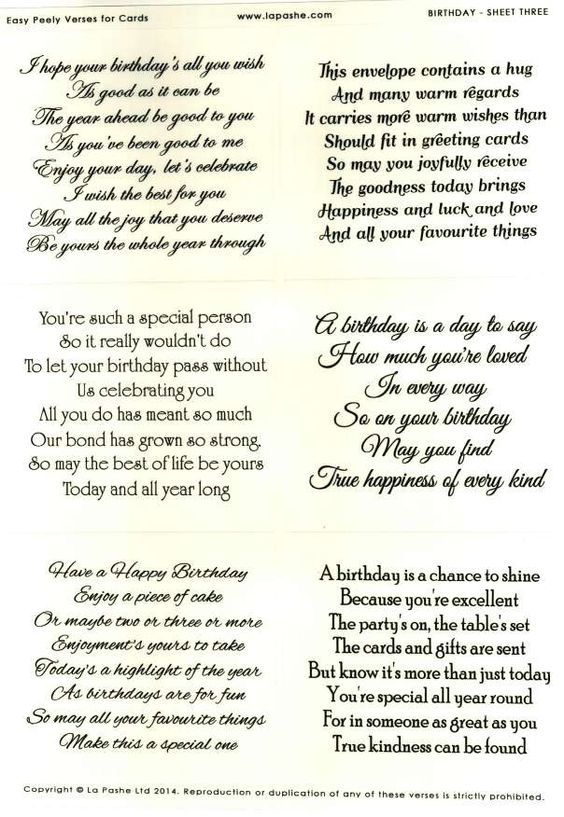 Easy Peely Verses for Cards
www.lapashe.com
BIRTHDAY - SHEET THREE
I hope your birthday's all you wish
As good as it can be
The year ahead be good to you
As you've been good to me
Enjoy your day, let's celebrate
I wish the best for you
May all the joy that you deserve
Be yours the whole year through
This envelope contains a hug
And many warm regards
It carries more warm wishes than
Should fit in greeting cards
So may you joyfully receive
The goodness today brings
Happiness and luck and love
And all your favourite things
You're such a special person
So it really wouldn't do
To let your birthday pass without
Us celebrating you
All you do has meant so much
Our bond has grown so strong,
So may the best of life be yours
Today and all year long
A birthday is a day to say
How much you're loved
In every way
So on your birthday
May you find
True happiness of every kind
Have a Happy Birthday
Enjoy a piece of cake
Or maybe two or three or more
Enjoyment's yours to take
Today's a highlight of the year
As birthdays are for fun
So may all your favourite things
Make this a special one
A birthday is a chance to shine
Because you're excellent
The party's on, the table's set
The cards and gifts are sent
But know it's more than just today
You're special all year round
For in someone as great as you
True kindness can be found
Copyright © La Pashe Ltd 2014. Reproduction or duplication of any of these verses is strictly prohibited.